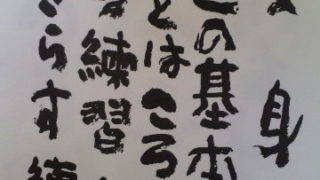 身
この基本
とはころ
な練習
さらす練